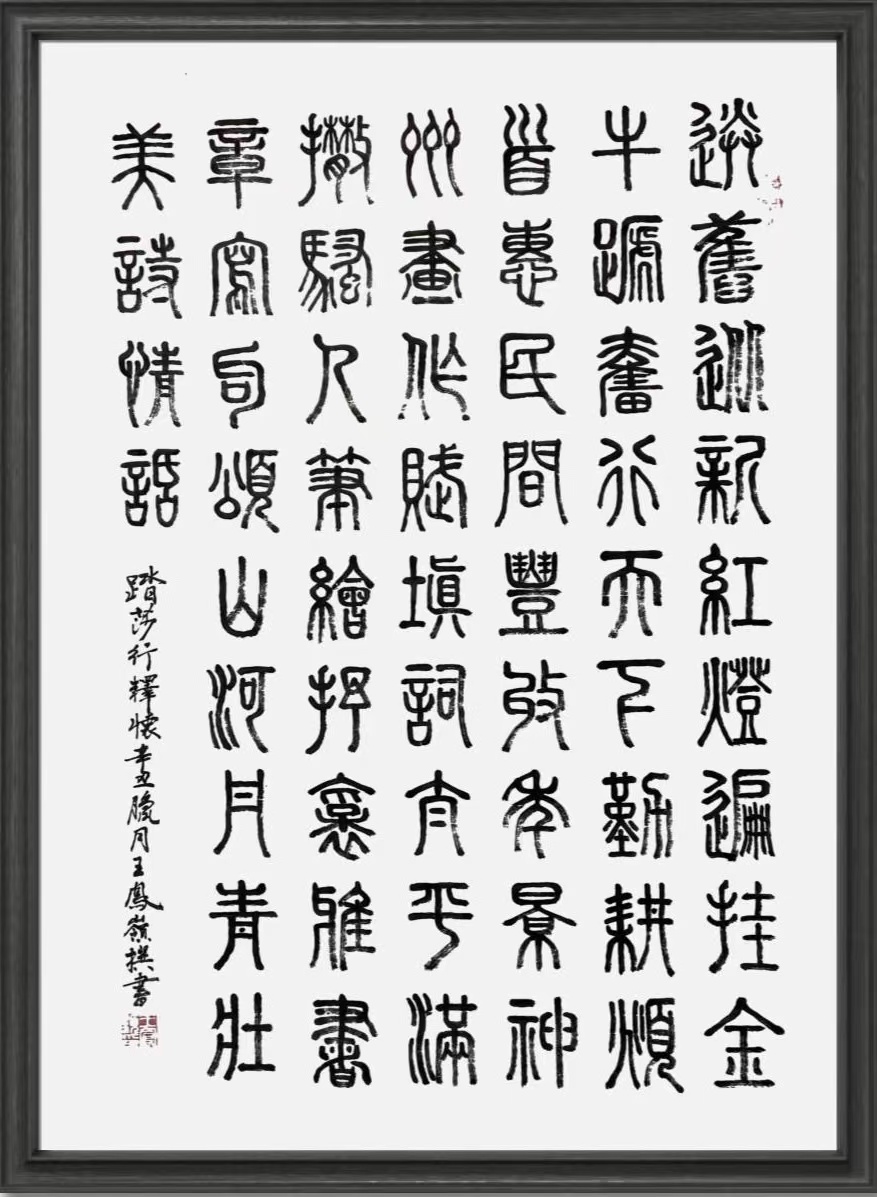 送舊迎新紅燈遍挂金
牛蹏奮行天下勤耕頻
首惠民間豐收年景神
州畫作賦填詞平滿
撒騷人筆繪抒褱雅書
章寫句頌山河丹青壯
美詩情話
踏莎行釋懷辛丑臘月王鳳嶺撰書